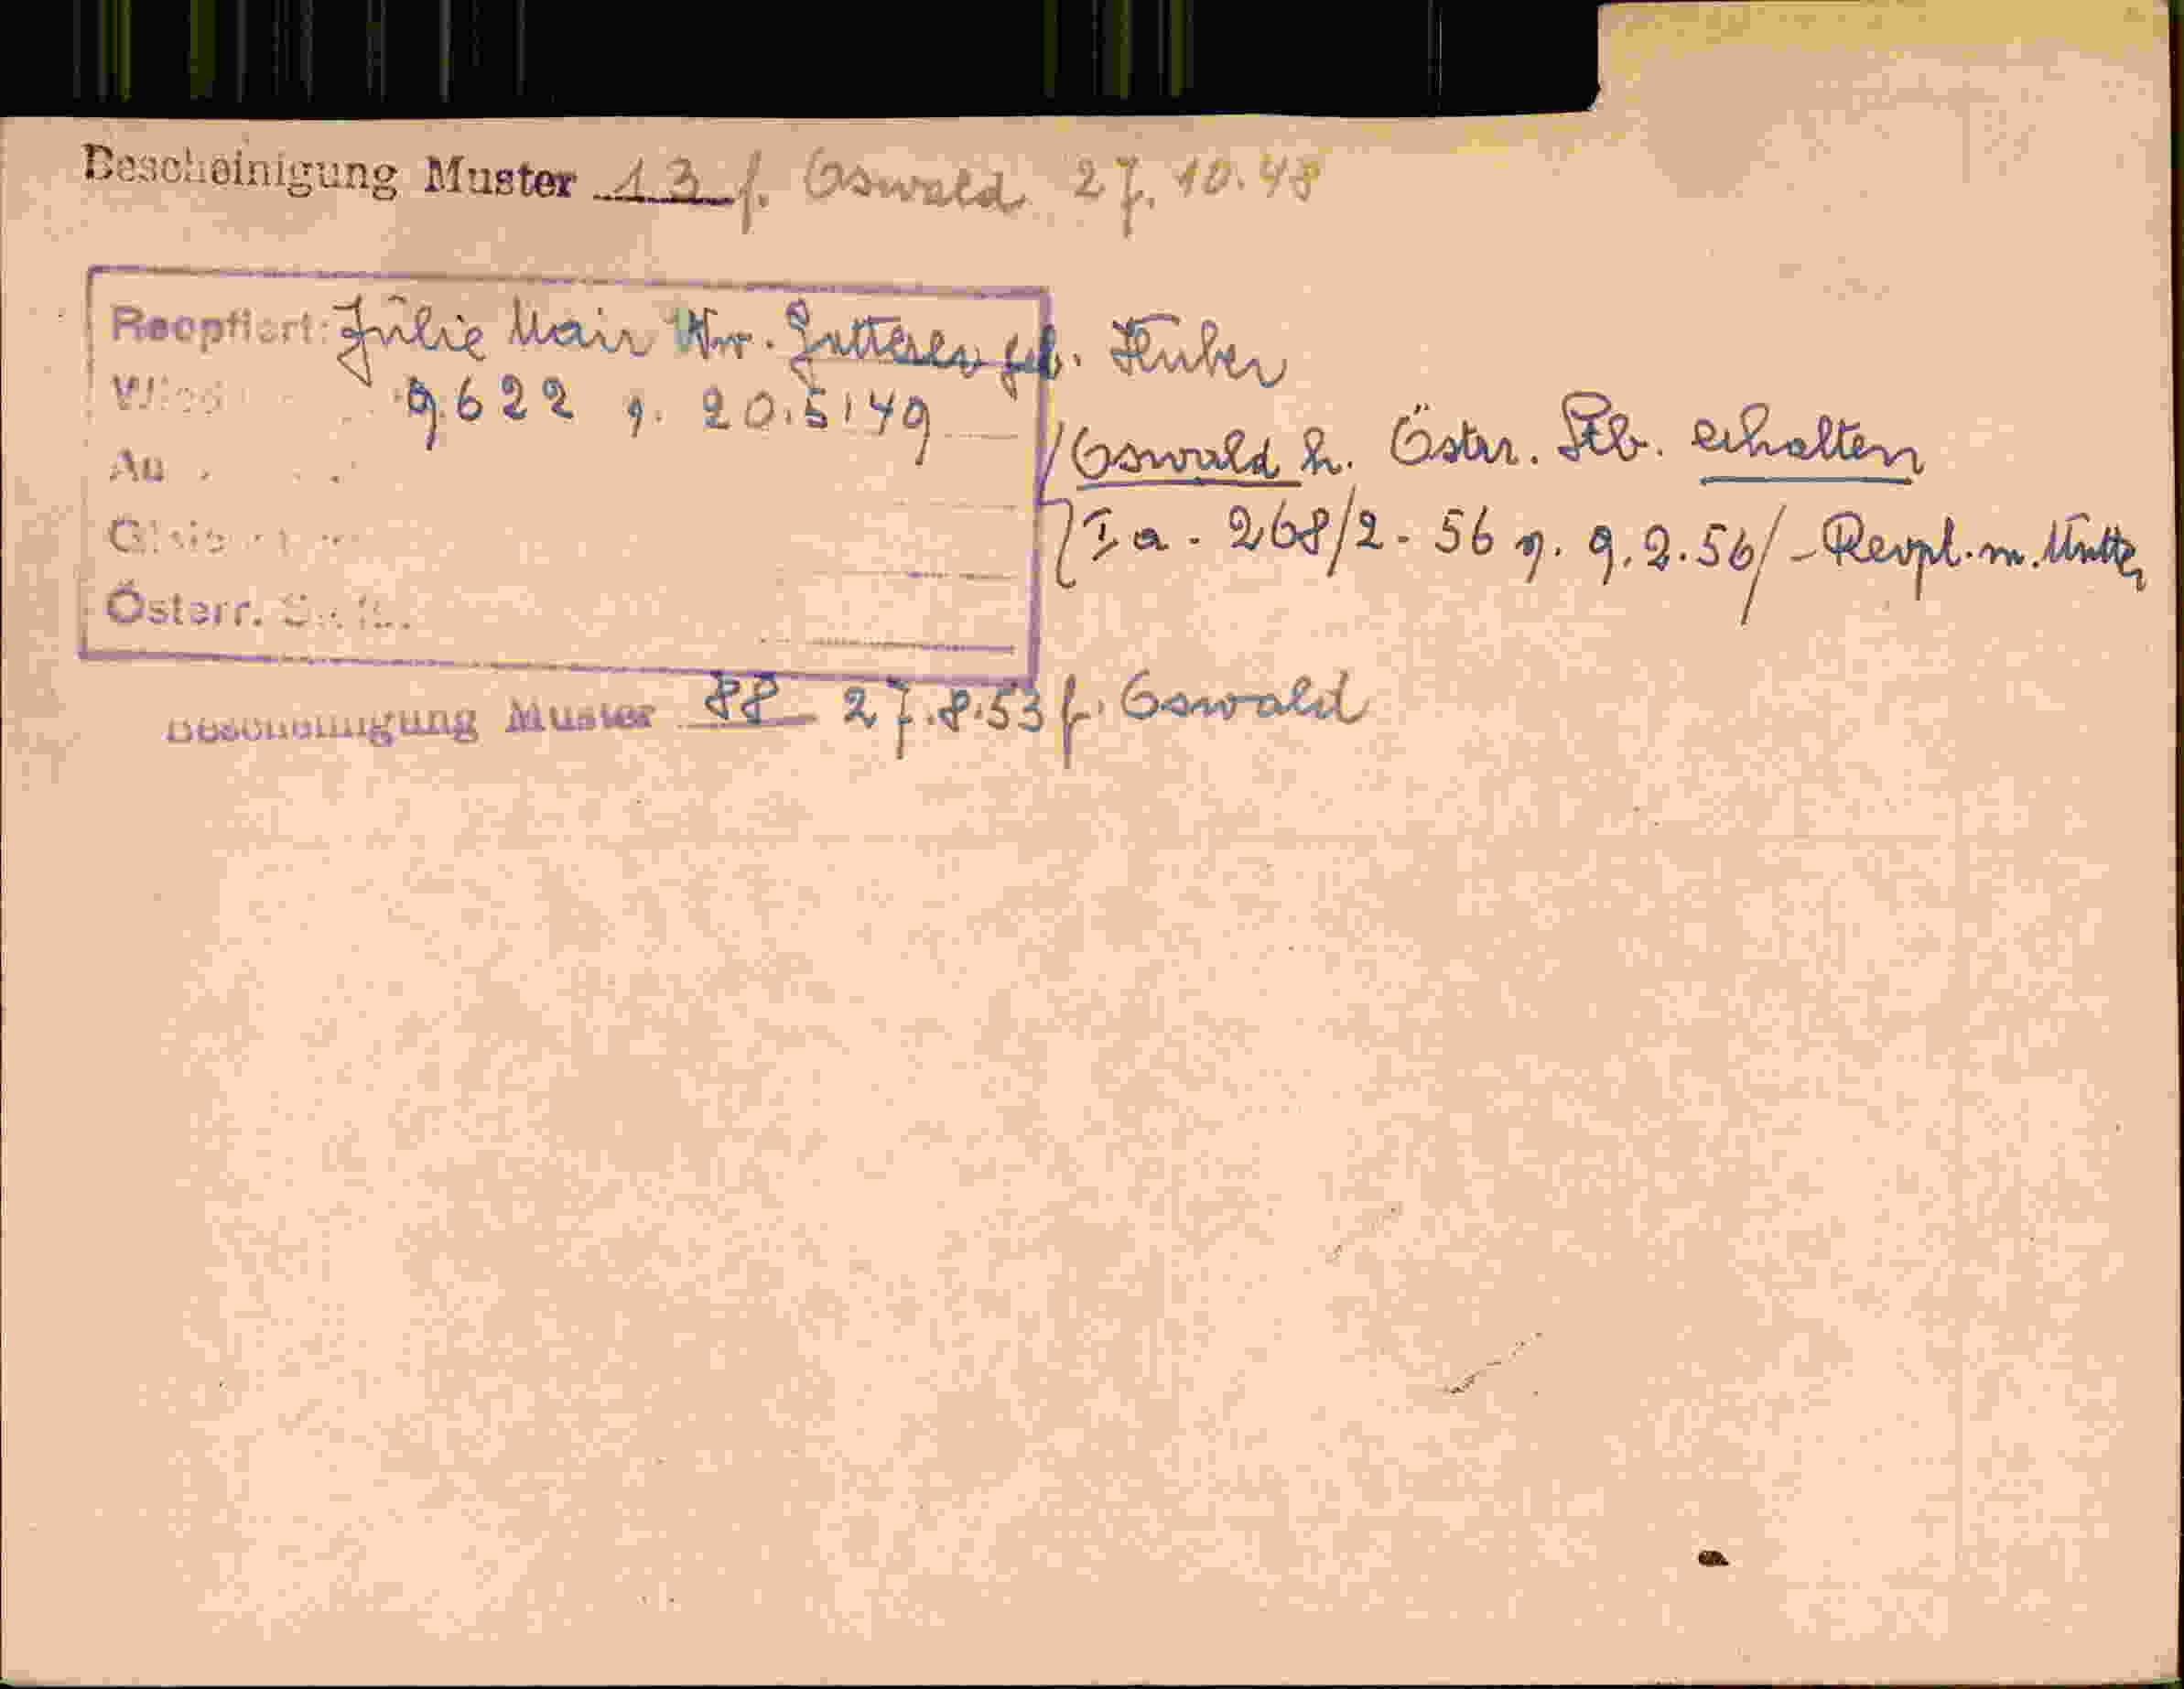 Bescheinigung Muster 13 f. Oswald 27.10.48
Reoptiert: Julie Mair Wwr. geb. Huber
9.622 v. 20.5.49
/Oswald h. Östr. Stb. erhalten
Ia - 268/2 - 56 v. 9.2.56/ - Reopt. m. Mutter
Österr.
Bescheinigung Muster 88 27.8.53 f. Oswald